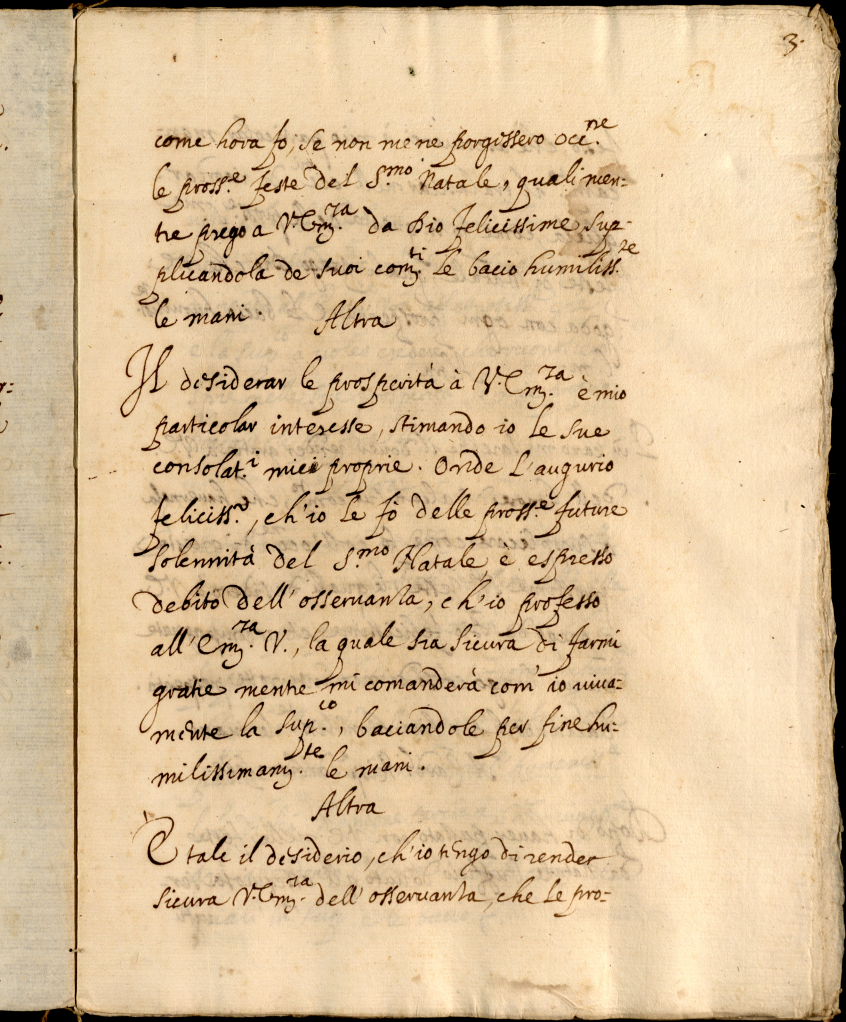 3.
come hora fo, se non me ne porgissero occ.ne
le pross.e feste del S.mo Natale, quali men-
tre prego a V. Em.za da Dio felicissime sup-
plicandola de suoi com.ti le bacio humiliss.te
le mani.
Altra
Il desiderar le prosperità à V. Em.za è mio
particolar interesse, stimando io le sue
consolat.i miei proprie. Onde l'augurio
feliciss.o, ch'io le fò delle pross.e future
solennità del S.mo Natale è espresso
debito dell'osservanza, ch'io professo
all'Em.za V., la quale sia sicura di farmi
gratie mentre mi comanderà com'io viva-
mente la sup.co, baciandole per fine hu-
milissimam.te le mani.
Altra
E tale il desiderio, ch'io tengo di render
sicura V. Em.za dell'osservanza, che le pro-